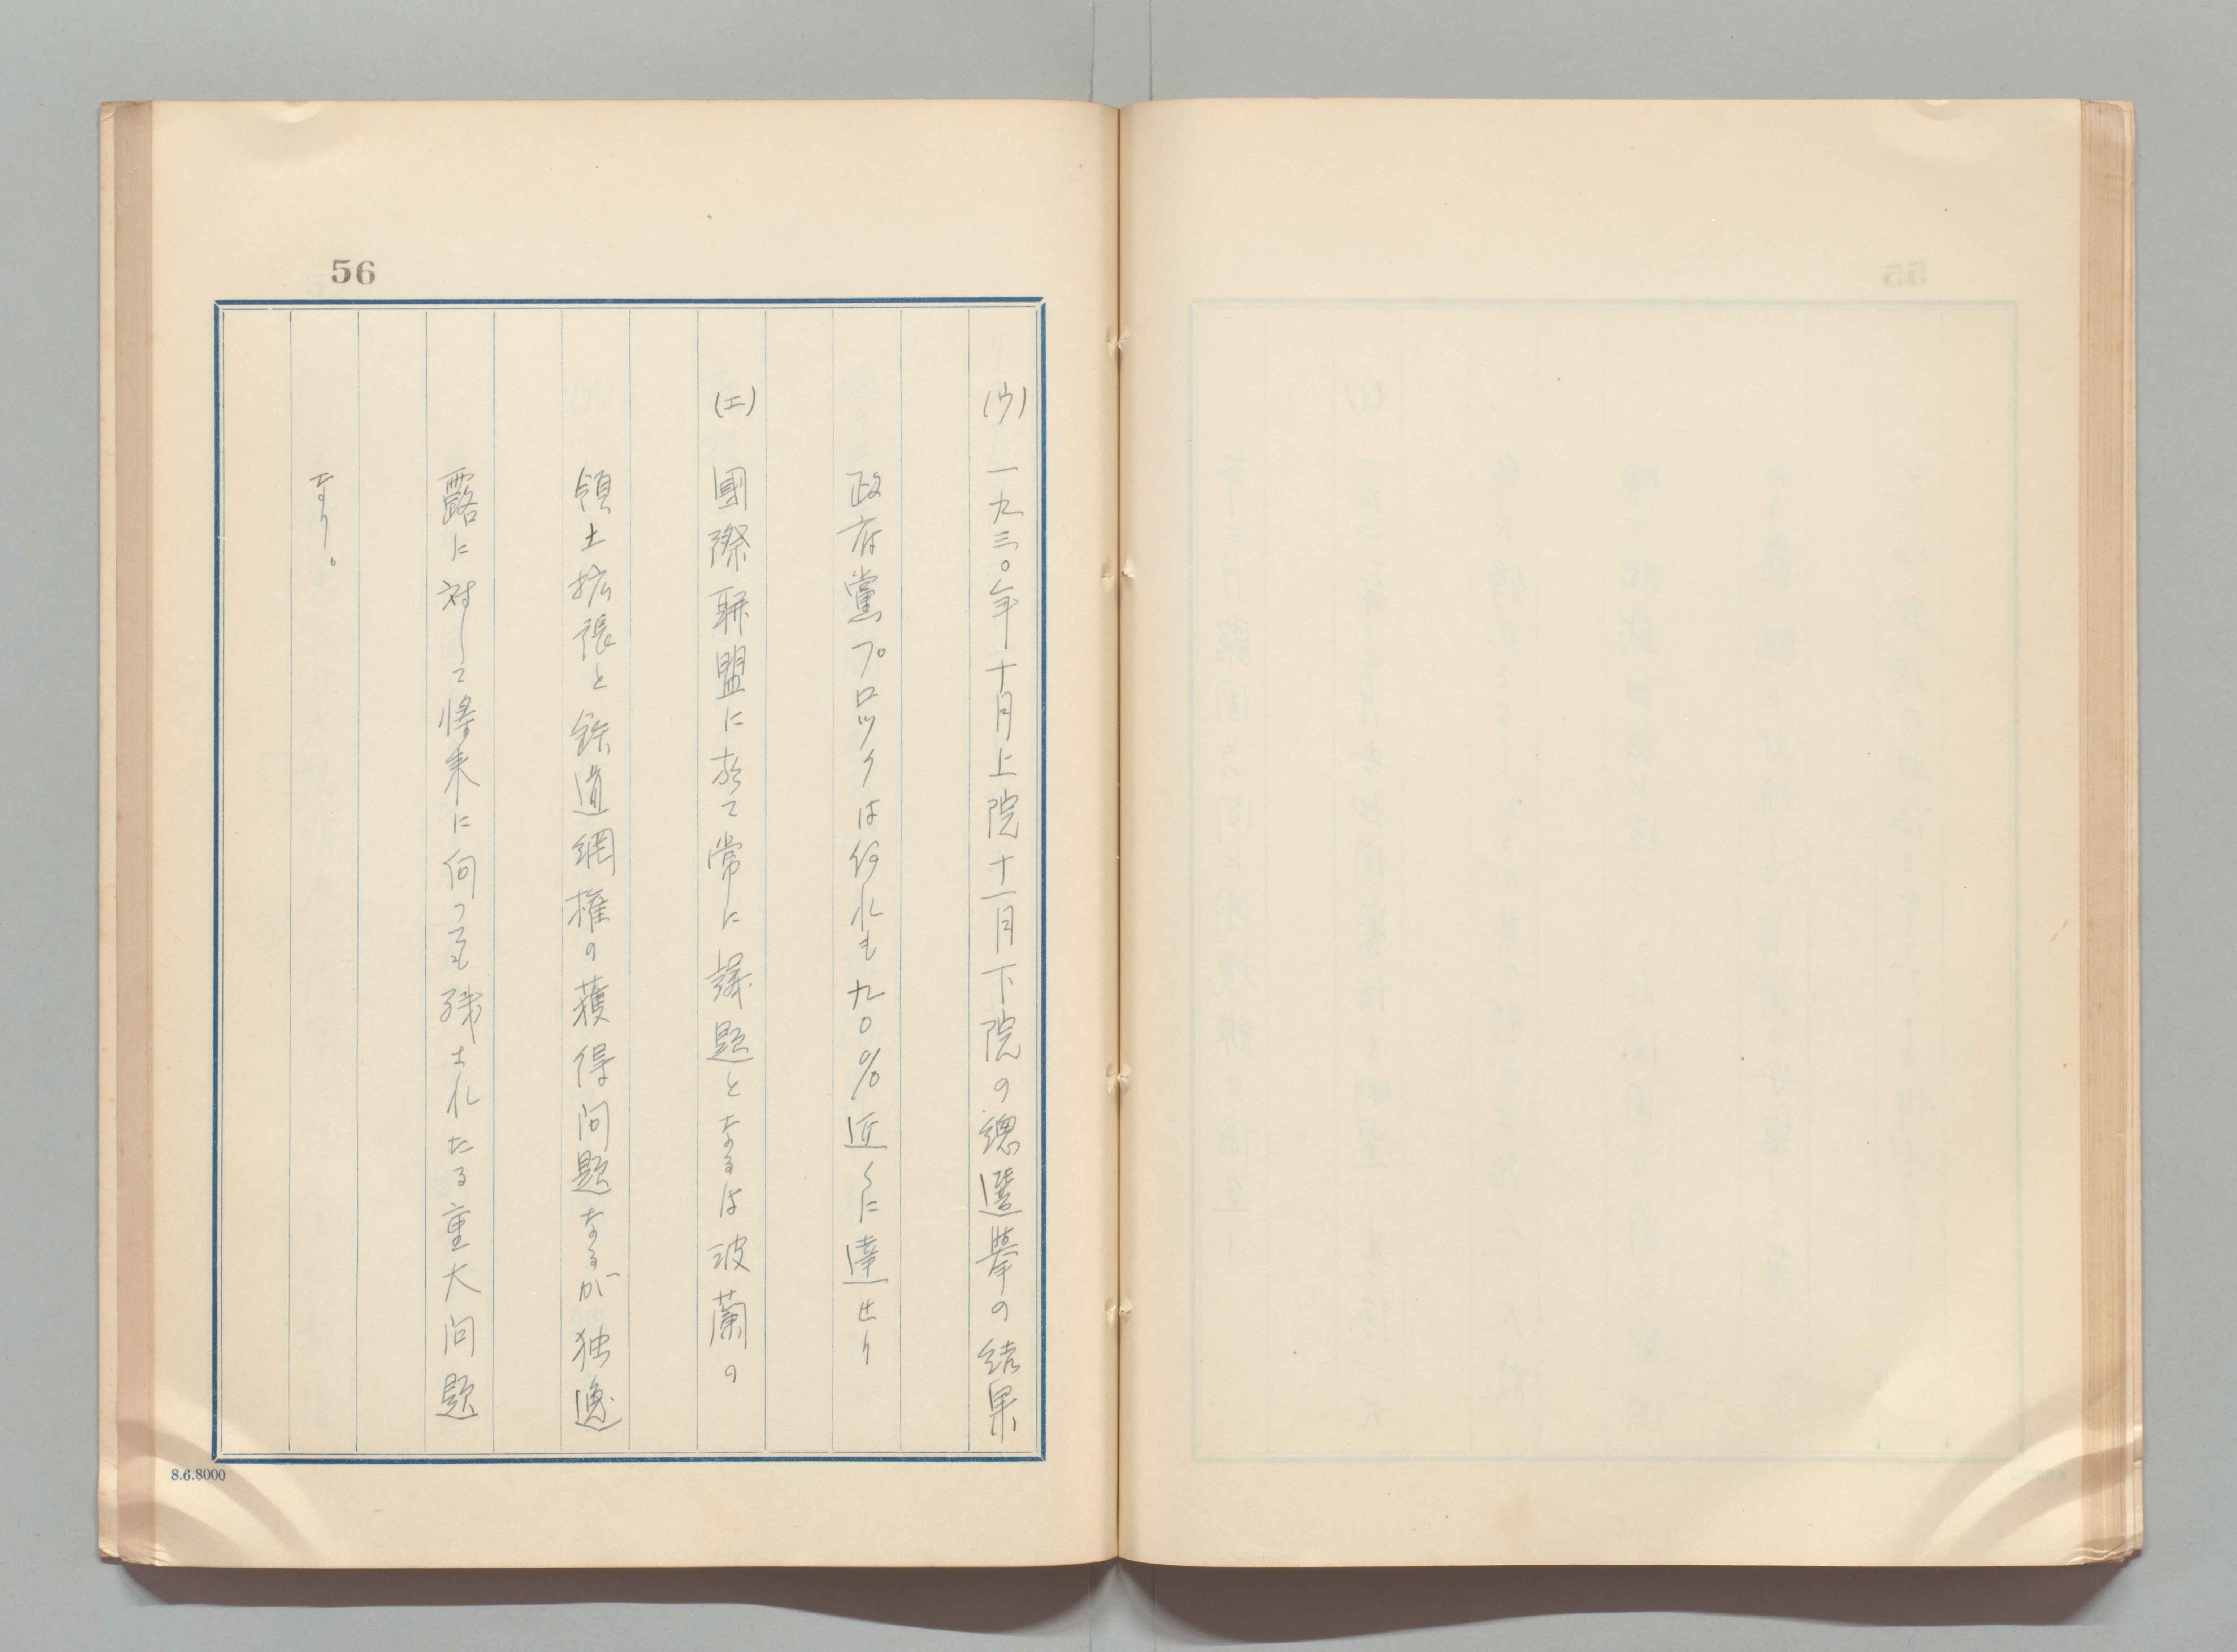 56
(ウ) 一九三〇年十月上院十一月下院の總選擧の結果
政府黨ブロックは何れも九〇%近くに達せり
(エ) 國際聯盟に於て常に議題となるは波蘭の
領土拡張と鉄道網権の獲得問題なるが独逸
露に対して將来に向つても残されたる重大問題
なり。
8.6.8000